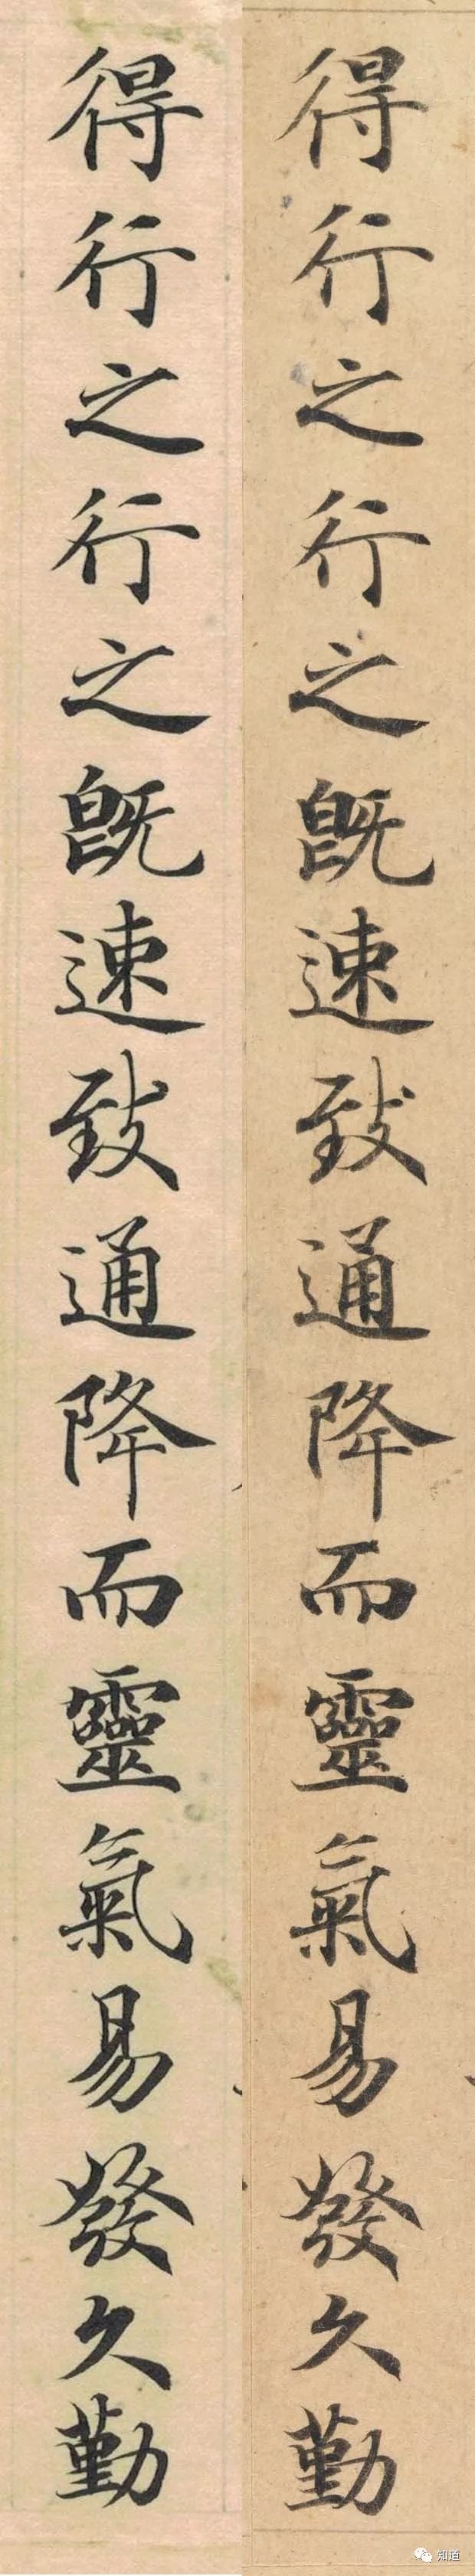 得行之行之既速致通降而靈氣易發久勤
得行之行之既速致通降而靈氣易發久勤
知道